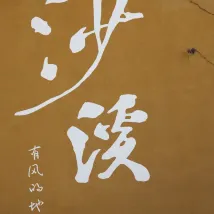 沙
溪
有风的地